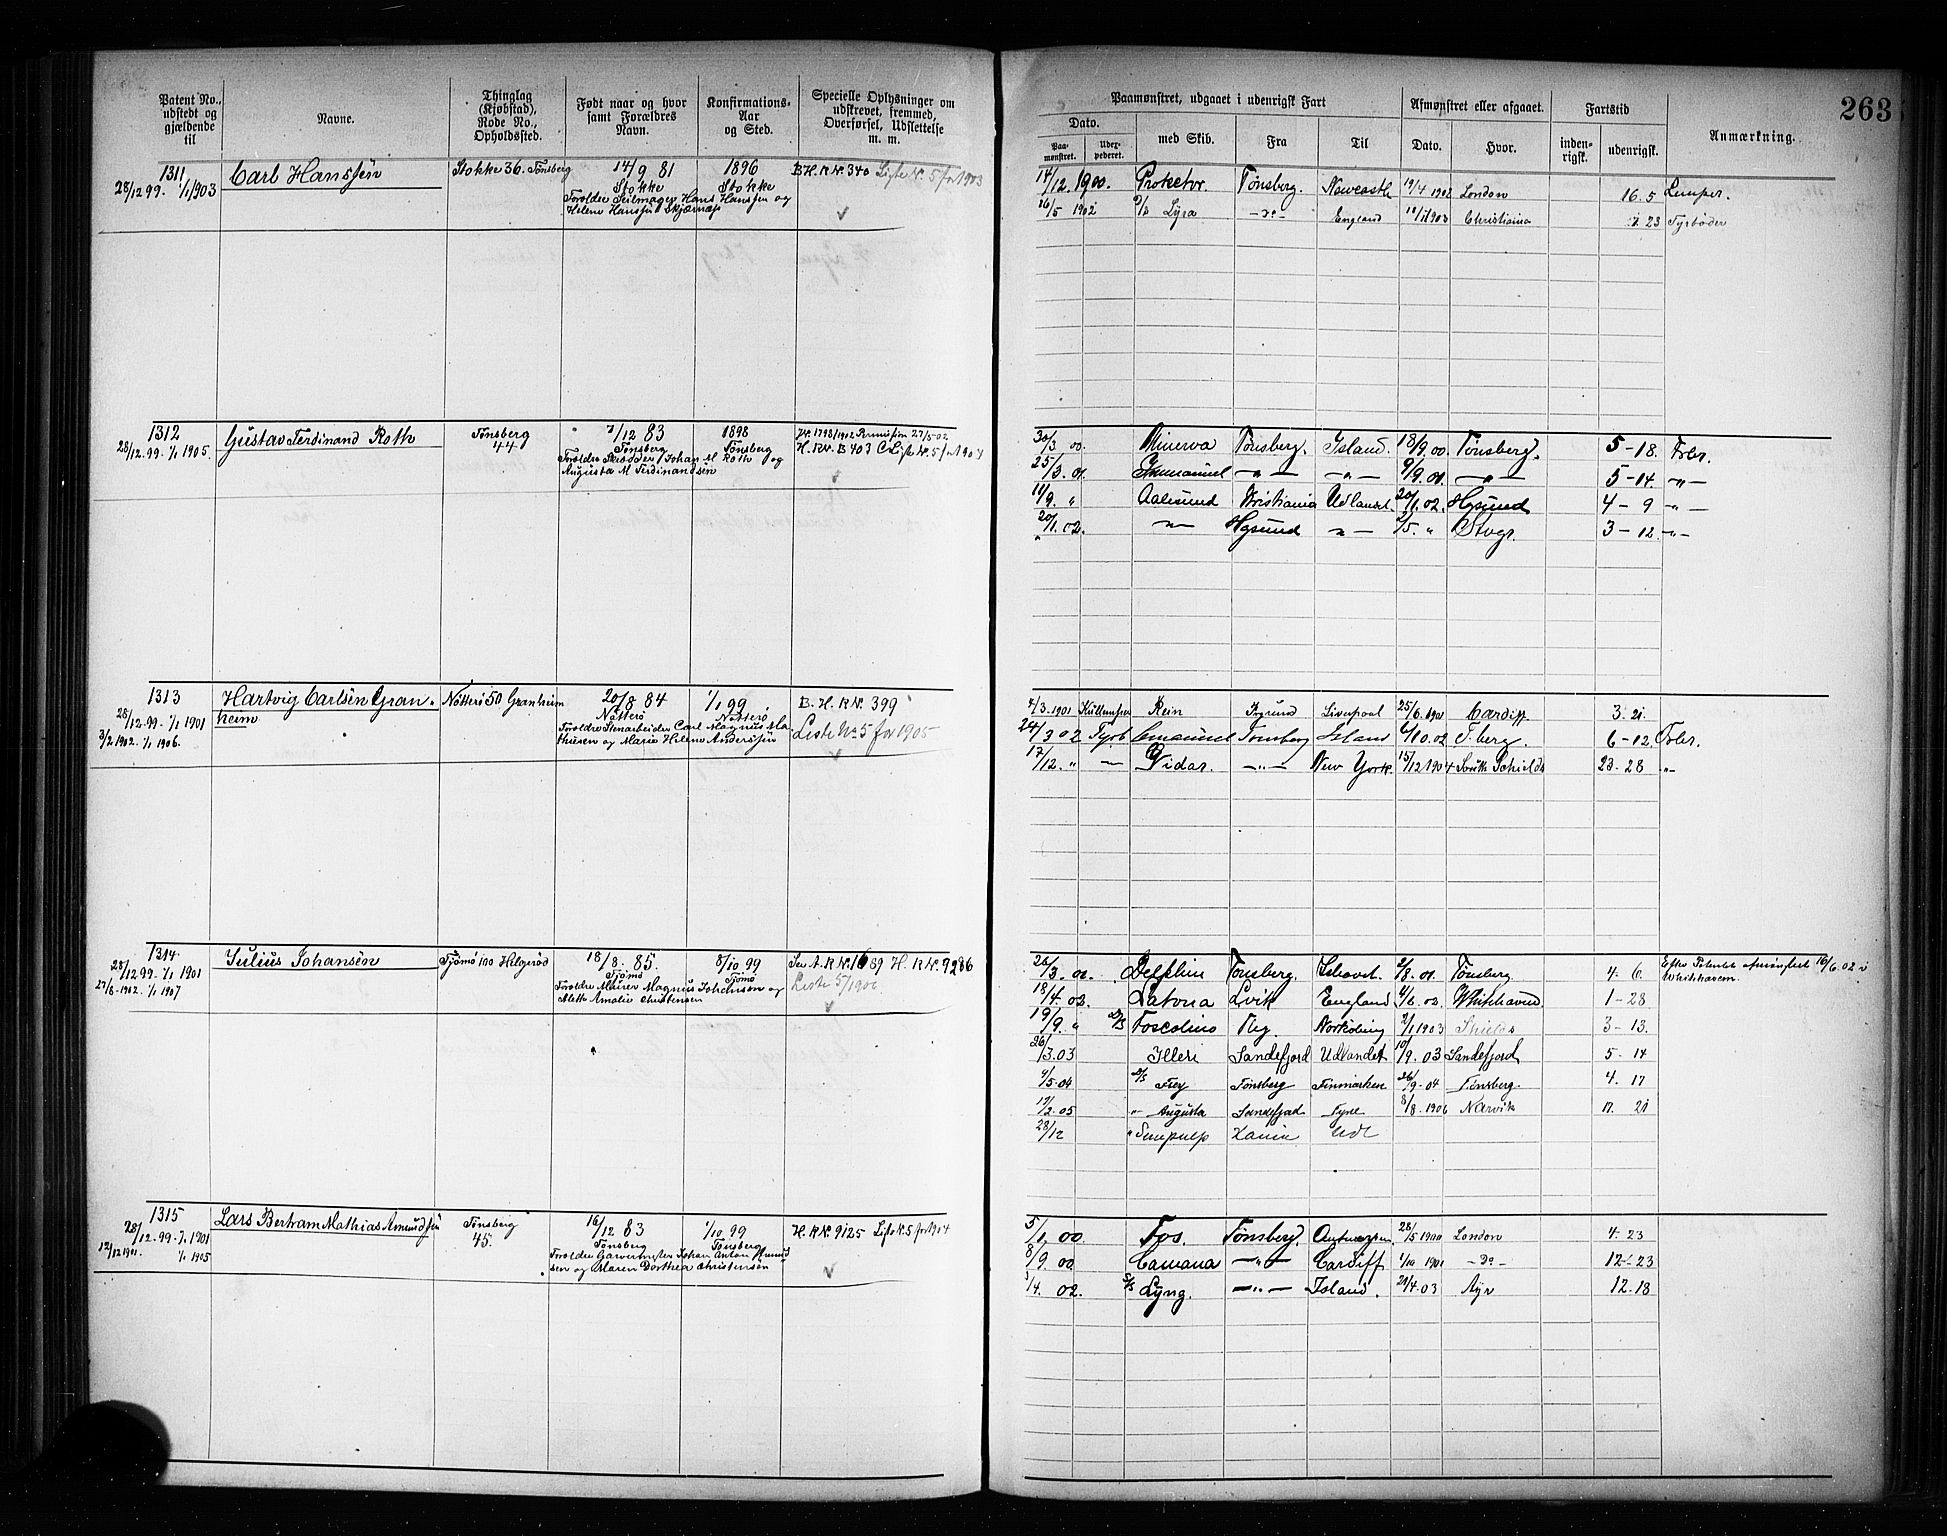 263
Patent No., udstedt og gjældende til
Navne.
Thinglag (Kjøbstad), Rode No., Opholdssted.
Født naar og hvor samt Forældres Navn.
Konfirmations-Aar og Sted.
Specielle Oplysninger om udskrevet, fremmed, Overførsel, Udslettelse m. m.
Paamønstret, udgaaet i udenrigsk Fart
Dato.
Paamønstret.
med Skib.
Fra
Til
Afmønstret eller afgaaet.
Dato.
Hvor.
Fartstid
indenrigsk.
udenrigsk.
Anmærkning.
1311
28/12 99. 1/1 1903
Carl Hanssen
Stokke 36. Tønsberg
14/9 81
Stokke
Forældre Seilmager Hans Hanssen og
Helene Hanssen
1896
Stokke
B H. R No. 340 Liste No. 5 for 1903
14/12 1900. Tønsberg. Newcastle 19/4 1902 London 16. 5 Lemper.
16/5 1902 Lyra England Christiania 23 Fyrbøder
1312
28/12 99. 1/1 1905.
Gustav Ferdinand Roth
Tønsberg
44
7/12 83
Tønsberg
Forældre Johan M Roth og
Augusta M Ferdinandsen
1898
Tønsberg
H. R No. B 403 Liste No. 5 for 1904
30/3 00. Minerva Tønsberg. Island. 18/9. 00. Tønsberg. 5-18.
25/3. 01. 9/9. 01. 5-14. -"-
11/9. " Aalesund Kristiania Udlandet 20/1. 02. Hgsund 4-9 -"-
20/1. 02. Hgsund 2/5. " Stvgr. 3-12 -"-
1313
28/12. 99. 1/1 1901
3/2 1902. 1/1 1906.
Hartvig Carlsen Gran-
heim
Nøtterø 50 Granheim
20/8 84
Nøtterø
Forældre Stenarbeider Carl Magnus Ma-
thisen og Marie Helene Anderssen
1/1 99
Nøtterø
B. H. R No. 399
Liste No 5 for 1905
4/3. 1901 Rein Liverpool 25/6. 1901 Cardiff 3. 21.
24/3 02 Fyrb Emanuel Tønsberg Island 6/10. 02 T.berg. 6-12.
17/12. " Vidar. New York. 15/12 1904 South Schields 23-28 "
1314
28/12 99. 1/1 1901
27/6 1902. 1/1 1907
Julius Johansen
Tjømø 100 Helgerød
18/8. 85.
Tjømø
Forældre Murer Magnus Johansen og
Aleth Amalie Christensen
8/10 99
Tjømø
Sen A. R No. 1689 H. R No. 9286
Liste 5/1906
26/3. 01. Delphin Tønsberg. Ishavet. 2/8. 01. Tønsberg 4. 6.
18/4. 02. Latona Lvik England 4/6. 02. Whitehaven 1-28
19/9. " Foscolino Norköbing 2/1 1903 Shields 3-13.
26/3. 03 Illeri Sandefjord Udlandet 10/9. 03 Sandefjord 5. 14
4/5. 04 Frey Tønsberg Finmarken 26/9. 04 Tønsberg. 4. 17
17/2. 05 " Augusta Sandefjord Tyne 8/8. 1906 Narvik 17. 21
28/12 Udl
1315
28/12. 99. 1/1 1901
12/12 1901. 1/1 1905
Lars Bertram Mathias Amundsen
Tønsberg
45.
16/12 83
Tønsberg
Forældre Garvermester Johan Anton Amund-
sen og Maren Dorthea Christensen
1/10 99
Tønsberg
H. R No. 9125 Liste No. 5 for 1904
5/1. 00. Fos. Tønsberg. Antwerpen. 28/5 1900 London 4. 23
8/9. 00 Camana -"- Cardiff 1/10 1901 -Do- 12-23
3/4. 02. Lyng. -"- Island. 21/4. 03 Ayr 12. 18